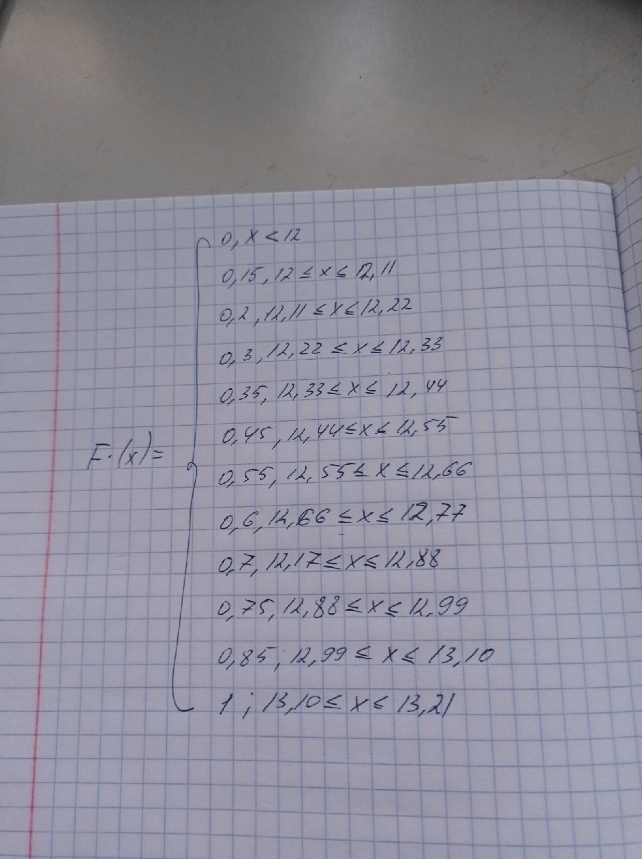 0, x < 12
0,15, 12 ≤ x ≤ 12,11
0,2, 12,11 ≤ x ≤ 12,22
0,3, 12,22 ≤ x ≤ 12,33
0,35, 12,33 ≤ x ≤ 12,44
0,45, 12,44 ≤ x ≤ 12,55
F*(x) =
0,55, 12,55 ≤ x ≤ 12,66
0,6, 12,66 ≤ x ≤ 12,77
0,7, 12,17 ≤ x ≤ 12,88
0,75, 12,88 ≤ x ≤ 12,99
0,85, 12,99 ≤ x ≤ 13,10
1; 13,10 ≤ x ≤ 13,21